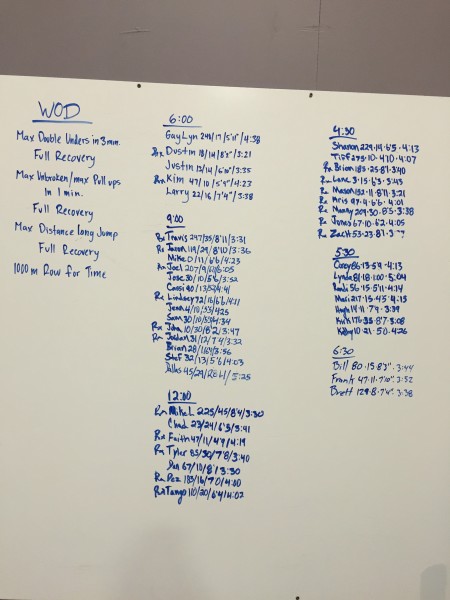 WOD
Max Double Unders in 3 min.
Full Recovery
Max Unbroken/max Pull ups
in 1 min.
Full Recovery
Max Distance long Jump
Full Recovery
1000 m Row for Time
6:00
GayLyn 248/17/5'11"/4:38
Rx Dustin 18/14/8'2"/3:21
Justin 13/14/6'10"/3:35
Rx Kim 47/10/5'9"/4:23
Larry 22/16/7'4"/3:38
9:00
Rx Travis 247/35/8'11/3:31
Rx Jason 119/29/8'10/3:36
Mike D /11/6'6/4:23
Rx Joel 207/9/6'1/6:05
Jose 30/10/8'6/3:52
Cassi 40/13/5'2/4:41
Rx Lindsey 72/16/6'6/4:11
Jean 4/10/5'3/4:25
Sam 30/10/5'5/4:34
Rx John /10/30/8'2/3:47
Rx Jordan 31/12/7'4/3:32
Brian 28/11/6'4/3:56
Stef 32/13/5'6/4:03
Dallas 45/29//5:25
12:00
Rx Mike L 225/45/8'4/3:30
Chad 23/24/6'3/3:41
Rx Faith 47/11/4'9/4:19
Rx Tyler 85/30/7'8/3:40
Jon 67/10/8'/3:30
Rx Pez 183/16/7'0/4:00
Rx Tango 110/20/6'4/4:02
4:30
Sharon 229·14·6'5·4:13
Tiff 275·10·4'10·4:07
Rx Brian 183·25·8'7·3:40
Rx Lane 3·15·6'3·3:43
Rx Mason 132·11·8'11·3:21
Rx Kris 97·9·6'6·4:01
Rx Manny 209·30·8'5·3:38
Rx Jones 67·10·6'2·4:05
Rx Zach 53·23·8'1
5:30
Corey 86·13·5'9·4:13
Lynda 81·18·1'00·5:04
Randi 56·15·5'11·4:14
Maci 217·15·4'5·4:15
Hugh 14·11·7'9·3:39
Kirk 176·35·8'7·3:08
Kelsey 10·21·5'0·4:26
6:30
Bill 80·15·8'3"·3:44
Frank 47·11·7'10"·3:52
Brett 129·8·7'4"·3:38